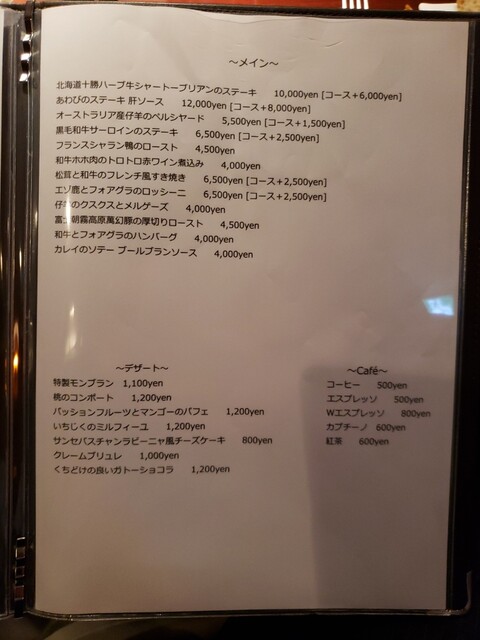 ～メイン～
北海道十勝ハーブ牛シャトーブリアンのステーキ 10,000yen [コース＋6,000yen]
あわびのステーキ 肝ソース 12,000yen [コース＋8,000yen]
オーストラリア産仔羊のペルシヤード 5,500yen [コース＋1,500yen]
黒毛和牛サーロインのステーキ 6,500yen [コース＋2,500yen]
フランスシャラン鴨のロースト 4,500yen
和牛ホホ肉のトロトロ赤ワイン煮込み 4,000yen
松茸と和牛のフレンチ風すき焼き 6,500yen [コース＋2,500yen]
エゾ鹿とフォアグラのロッシーニ 6,500yen [コース＋2,500yen]
仔羊のクスクスとメルゲーズ 4,000yen
富士朝霧高原萬幻豚の厚切りロースト 4,500yen
和牛とフォアグラのハンバーグ 4,000yen
カレイのソテー ブールブランソース 4,000yen
～デザート～
特製モンブラン 1,100yen
桃のコンポート 1,200yen
パッションフルーツとマンゴーのパフェ 1,200yen
いちじくのミルフィーユ 1,200yen
サンセバスチャンラビーニャ風チーズケーキ 800yen
クレームブリュレ 1,000yen
くちどけの良いガトーショコラ 1,200yen
～Café～
コーヒー 500yen
エスプレッソ 500yen
Wエスプレッソ 800yen
カプチーノ 600yen
紅茶 600yen